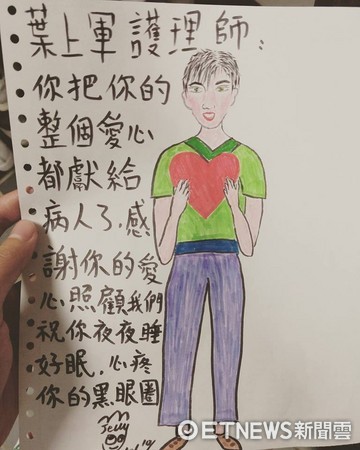 葉上軍護理師:
你把你的
整個愛心
都獻給
病人了,感
謝你的愛
心照顧我們
祝你夜夜睡
好眠,心疼
你的黑眼圈
Jelly
ETNEWS新聞雲